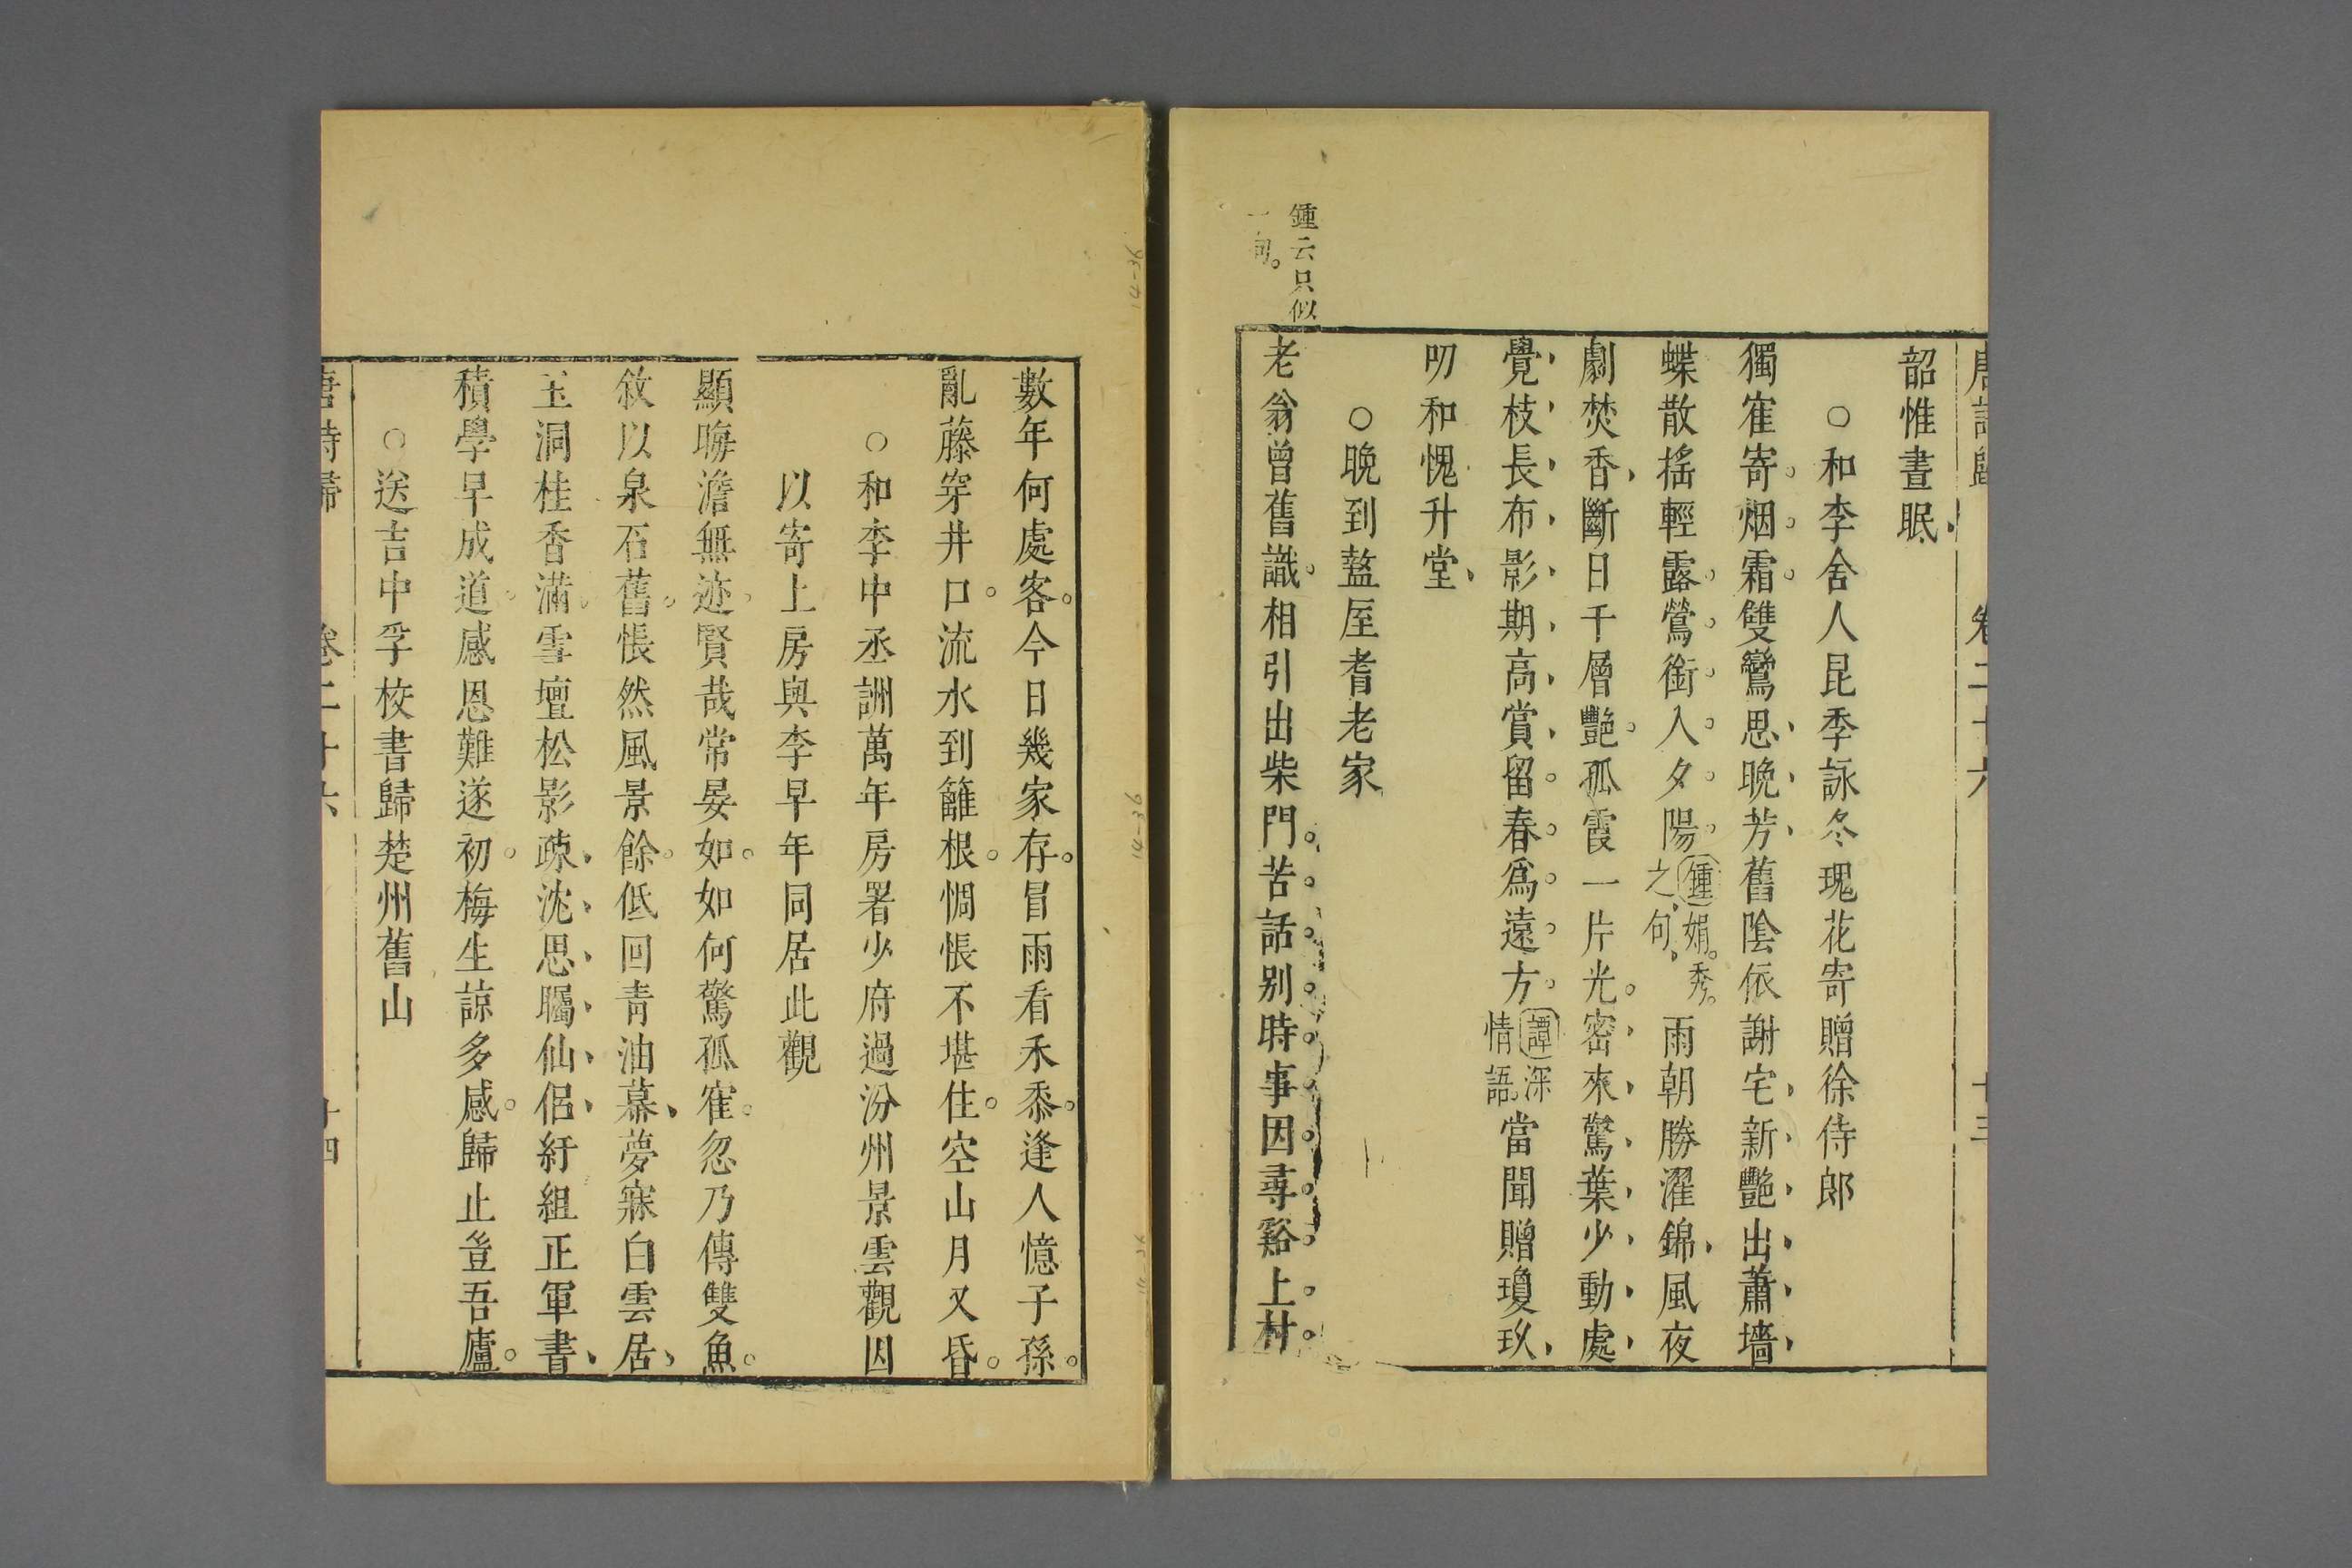 唐詩歸 卷二十六 十三
韶惟晝眠
○和李舍人昆季詠冬瑰花寄贈徐侍郎
獨寉寄烟霜雙鸞思晚芳舊陰依謝宅新艷出蕭墻
蝶散搖輕露鶯銜入夕陽鍾娟秀之句雨朝勝濯錦風夜
劇焚香斷日千層艷孤霞一片光密來驚葉少動處
覺枝長布影期高賞留春爲遠方譚深情語當聞贈瓊玖
叨和愧升堂
○晚到盩厔耆老家
鍾云只似一句
老翁曾舊識相引出柴門苦話别時事因尋谿上村
數年何處客今日幾家存冒雨看禾黍逢人憶子孫
亂藤穿井口流水到籬根惆悵不堪住空山月又昏
○和李中丞詶萬年房署少府過汾州景雲觀因
以寄上房與李早年同居此觀
顯晦澹無迹賢哉常晏如如何驚孤寉忽乃傳雙魚
敘以泉石舊悵然風景餘低回青油幕夢寐白雲居
玉洞桂香滿雪壇松影疎沈思矚仙侣紆組正軍書
積學早成道感恩難遂初梅生諒多感歸止豈吾廬
○送吉中孚校書歸楚州舊山
唐詩歸 卷二十六 十四